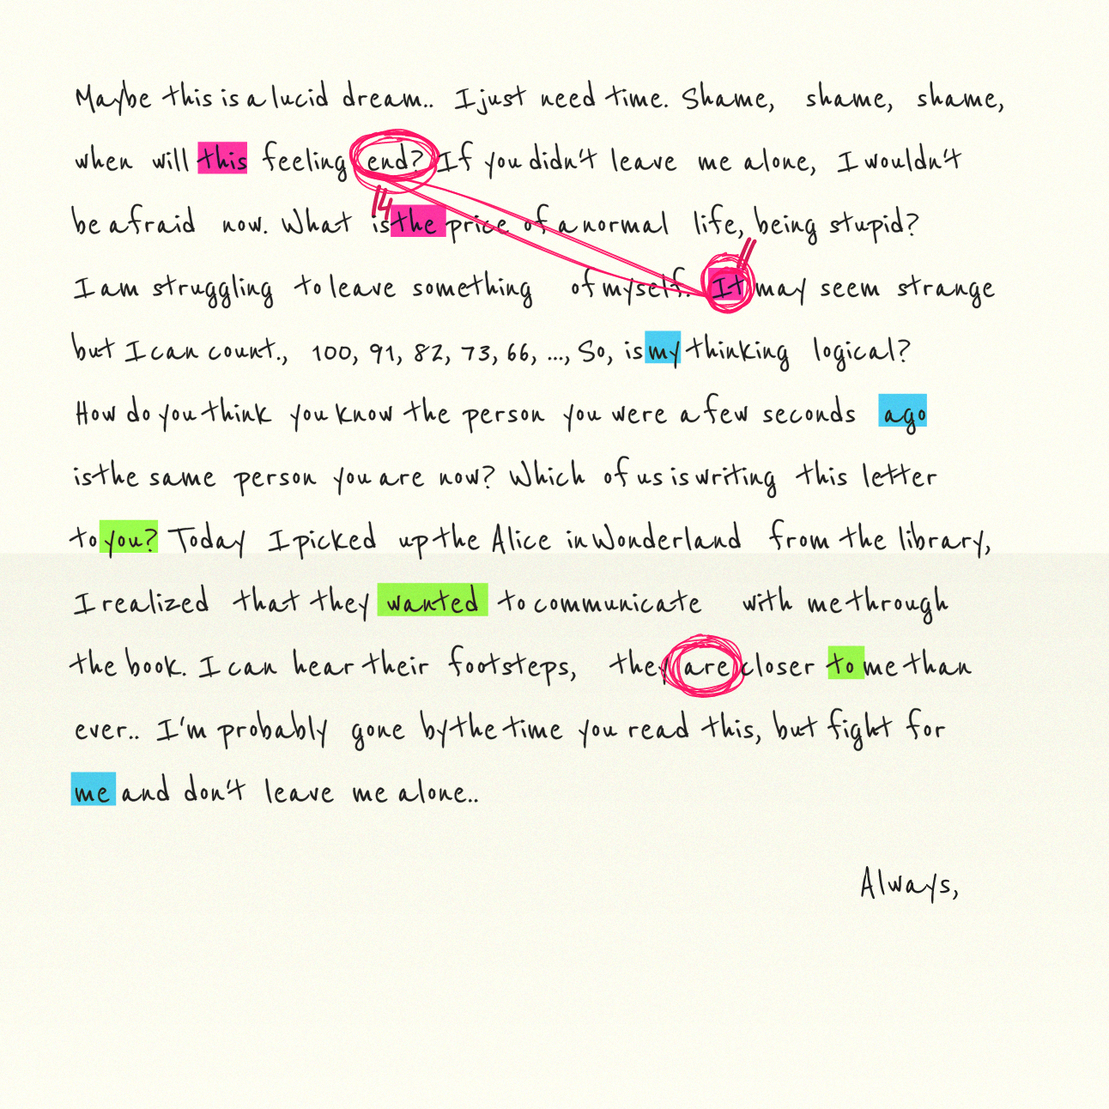 Maybe this is a lucid dream.. I just need time. Shame, shame, shame,
when will this feeling end? If you didn't leave me alone, I wouldn't
14
be afraid now. What is the price of a normal life, being stupid?
11
I am struggling to leave something of myself. It may seem strange
but I can count., 100, 91, 82, 73, 66, ..., So, is my thinking logical?
How do you think you know the person you were a few seconds ago
is the same person you are now? Which of us is writing this letter
to you? Today I picked up the Alice in Wonderland from the library,
I realized that they wanted to communicate with me through
the book. I can hear their footsteps, they are closer to me than
ever.. I'm probably gone by the time you read this, but fight for
me and don't leave me alone..
Always,